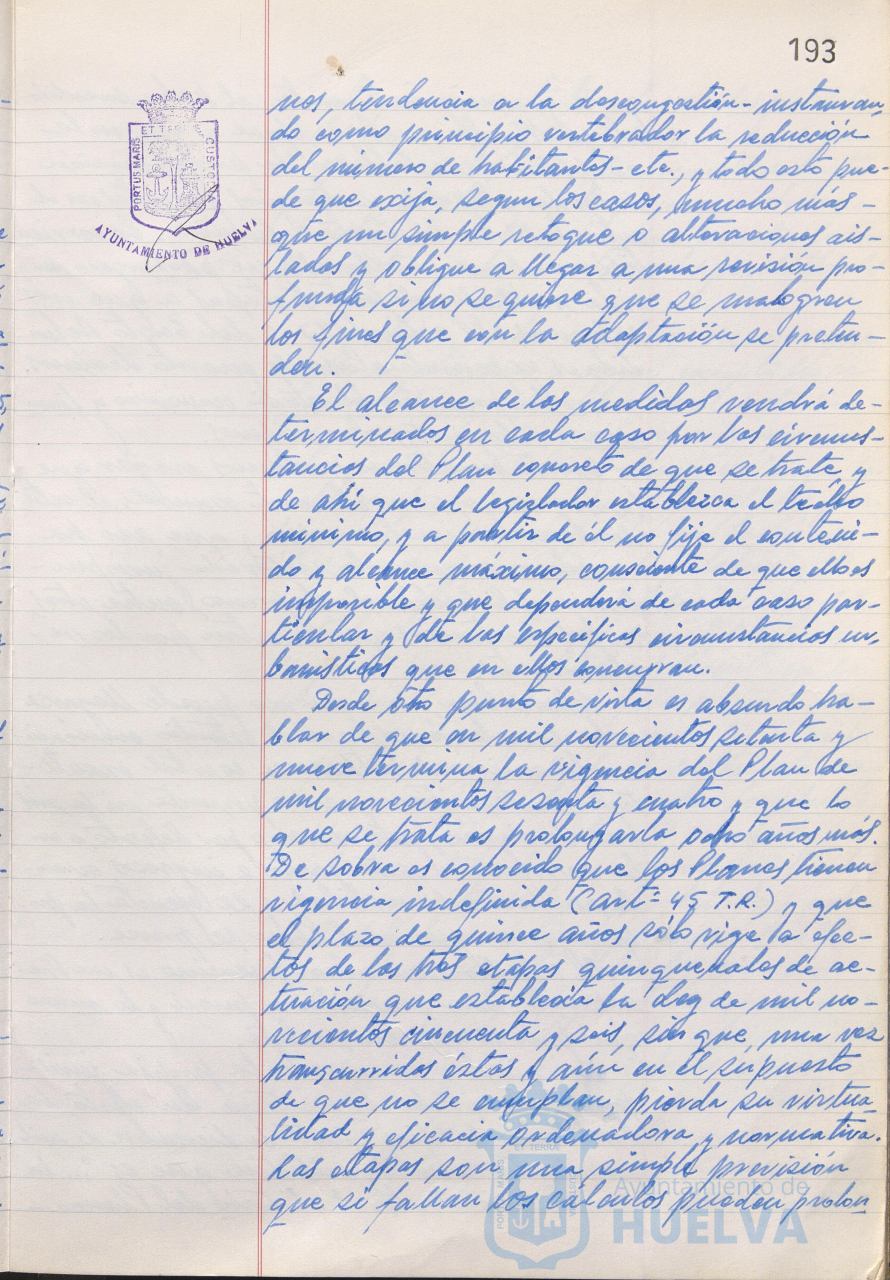 193
PORTUS MARIS ET TERRE CUSTODIA
AYUNTAMIENTO DE HUELVA
nos, tendencia a la descongestión- instauran-
do como principio vertebrador la reducción
del número de habitantes- etc., y todo esto pue-
de que exija, segun los casos, mucho más-
que un simple retoque o alteraciones ais-
lados y obligue a llegar a una revisión pro-
funda si no se quiere que se malogren
los fines que con la adaptación se preten-
den.
El alcance de las medidas vendrá de-
terminados en cada caso por las circuns-
tancias del Plan concreto de que se trate y
de ahí que el legislador establezca el techo
mínimo, y a partir de él no fija el conteni-
do y alcance máximo, consciente de que ello es
imposible y que dependerá de cada caso par-
ticular y de las específicas circunstancias ur-
banísticas que en ellos concurran.
Desde otro punto de vista es absurdo ha-
blar de que en mil novecientos setenta y
nueve termina la vigencia del Plan de
mil novecientos sesenta y cuatro y que lo
que se trata es prolongarla ocho años más.
De sobra es conocido que los Planes tienen
vigencia indefinida (artº 45 T.R.) y que
el plazo de quince años sólo vige a efec-
tos de las tres etapas quinquenales de ac-
tuación que establecía la Ley de mil no-
vecientos cincuenta y seis, sin que, una vez
transcurridas éstas y aún en el supuesto
de que no se cumplan, pierda su virtua-
lidad y eficacia ordenadora y normativa.
Las etapas son una simple previsión
que si fallan los cálculos pueden prolon-
Ayuntamiento de
HUELVA